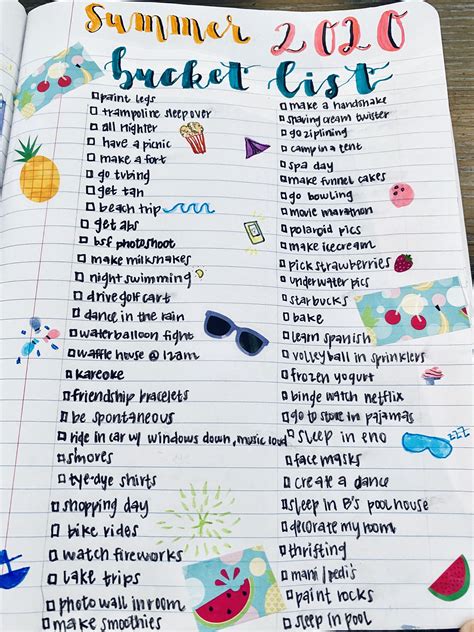 summer 2020
bucket list
paint legs
trampoline sleepover
all nighter
have a picnic
make a fort
go tubing
get tan
beach trip
get abs
bsf photoshoot
make milkshakes
night swimming
drive golf cart
dance in the rain
waterballoon fight
waffle house @ 12am
kareoke
friendship bracelets
be spontaneous
ride in car w/ windows down, music loud
s'mores
tye-dye shirts
shopping day
bike rides
watch fireworks
lake trips
photo wall in room
make smoothies
make a handshake
shaving cream twister
go ziplining
camp in a tent
spa day
make funnel cakes
go bowling
movie marathon
polaroid pics
make icecream
pick strawberries
underwater pics
starbucks
bake
learn spanish
volleyball in sprinklers
frozen yogurt
binge watch netflix
go to store in pajamas
sleep in eno
zzz
face masks
create a dance
sleep in B's pool house
decorate my room
thrifting
mani/pedi's
paint rocks
sleep in pool